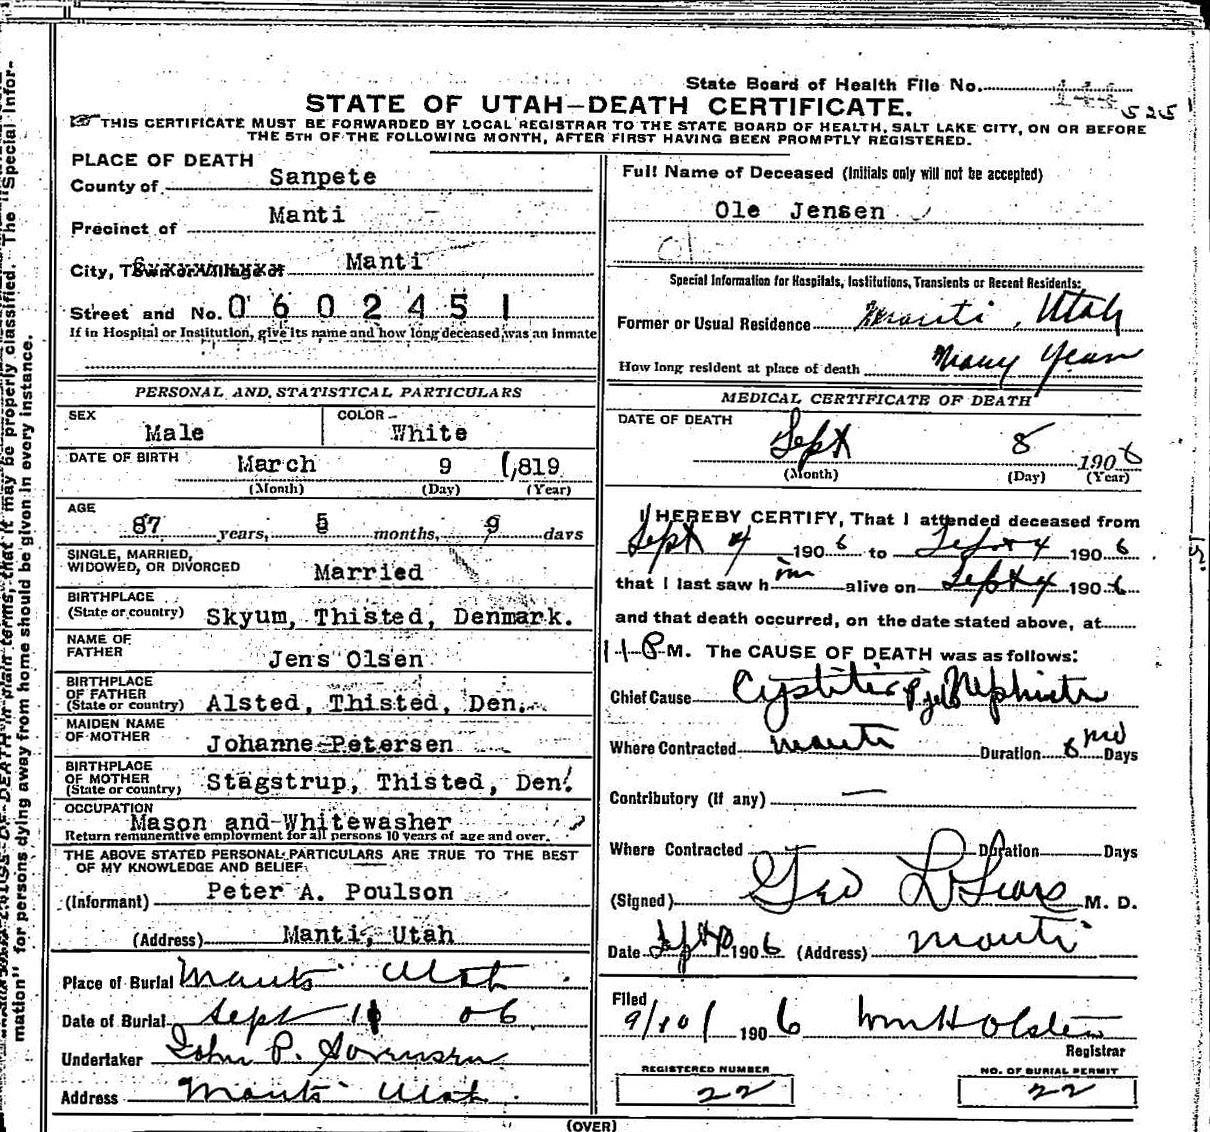 State Board of Health File No. 525
STATE OF UTAH—DEATH CERTIFICATE.
THIS CERTIFICATE MUST BE FORWARDED BY LOCAL REGISTRAR TO THE STATE BOARD OF HEALTH, SALT LAKE CITY, ON OR BEFORE
THE 5TH OF THE FOLLOWING MONTH, AFTER FIRST HAVING BEEN PROMPTLY REGISTERED.
PLACE OF DEATH
County of Sanpete
Precinct of Manti
City, Town or Village of Manti
Street and No. 0602451
If in Hospital or Institution, give its name and how long deceased was an inmate
PERSONAL AND STATISTICAL PARTICULARS
SEX Male COLOR White
DATE OF BIRTH March 9 1819
(Month) (Day) (Year)
AGE
87 years, 5 months, 9 days
SINGLE, MARRIED,
WIDOWED, OR DIVORCED Married
BIRTHPLACE
(State or country) Skyum, Thisted, Denmark.
NAME OF
FATHER Jens Olsen
BIRTHPLACE
OF FATHER
(State or country) Alsted, Thisted, Den.
MAIDEN NAME
OF MOTHER Johanne Petersen
BIRTHPLACE
OF MOTHER
(State or country) Stagstrup, Thisted, Den.
OCCUPATION
Mason and Whitewasher
Return remunerative employment for all persons 10 years of age and over.
THE ABOVE STATED PERSONAL PARTICULARS ARE TRUE TO THE BEST
OF MY KNOWLEDGE AND BELIEF
(Informant) Peter A. Poulson
(Address) Manti, Utah
Place of Burial Manti Utah
Date of Burial Sept 11 06
Undertaker John P. Sorensen
Address Manti Utah
Full Name of Deceased (Initials only will not be accepted)
Ole Jensen
Special Information for Hospitals, Institutions, Transients or Recent Residents:
Former or Usual Residence Manti, Utah
How long resident at place of death Many Years
MEDICAL CERTIFICATE OF DEATH
DATE OF DEATH
Sept 8 1906
(Month) (Day) (Year)
I HEREBY CERTIFY, That I attended deceased from
Sept 4 1906 to Sept 4 1906
that I last saw him alive on Sept 4 1906
and that death occurred, on the date stated above, at
M. The CAUSE OF DEATH was as follows:
Chief Cause Cystitis Nephritis
Where Contracted Manti Duration 6 Days
Contributory (if any) —
Where Contracted Duration Days
(Signed) Geo L Sears M. D.
Date Sept 1906 (Address) Manti
Filed
9/10/ 1906 Wm H Olsten
Registrar
REGISTERED NUMBER
22
NO. OF BURIAL PERMIT
22
(OVER)
DEATH in plain terms, that it may be properly classified. The "Special Infor-
mation" for persons dying away from home should be given in every instance.